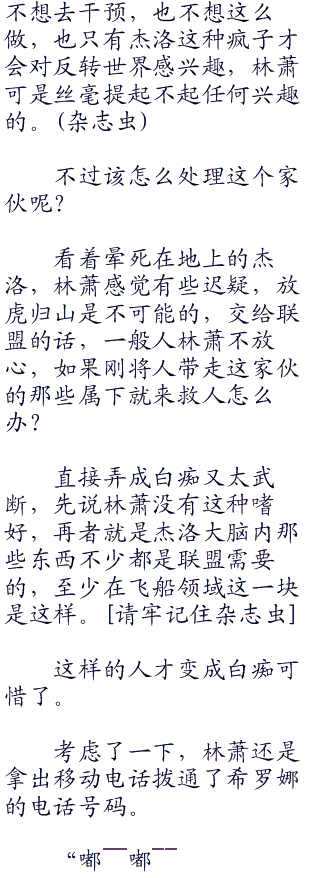 不想去干预，也不想这么
做，也只有杰洛这种疯子才
会对反转世界感兴趣，林萧
可是丝毫提起不起任何兴趣
的。(杂志虫)
不过该怎么处理这个家
伙呢？
看着晕死在地上的杰
洛，林萧感觉有些迟疑，放
虎归山是不可能的，交给联
盟的话，一般人林萧不放
心，如果刚将人带走这家伙
的那些属下就来救人怎么
办？
直接弄成白痴又太武
断，先说林萧没有这种嗜
好，再者就是杰洛大脑内那
些东西不少都是联盟需要
的，至少在飞船领域这一块
是这样。[请牢记住杂志虫]
这样的人才变成白痴可
惜了。
考虑了一下，林萧还是
拿出移动电话拨通了希罗娜
的电话号码。
“嘟——嘟——